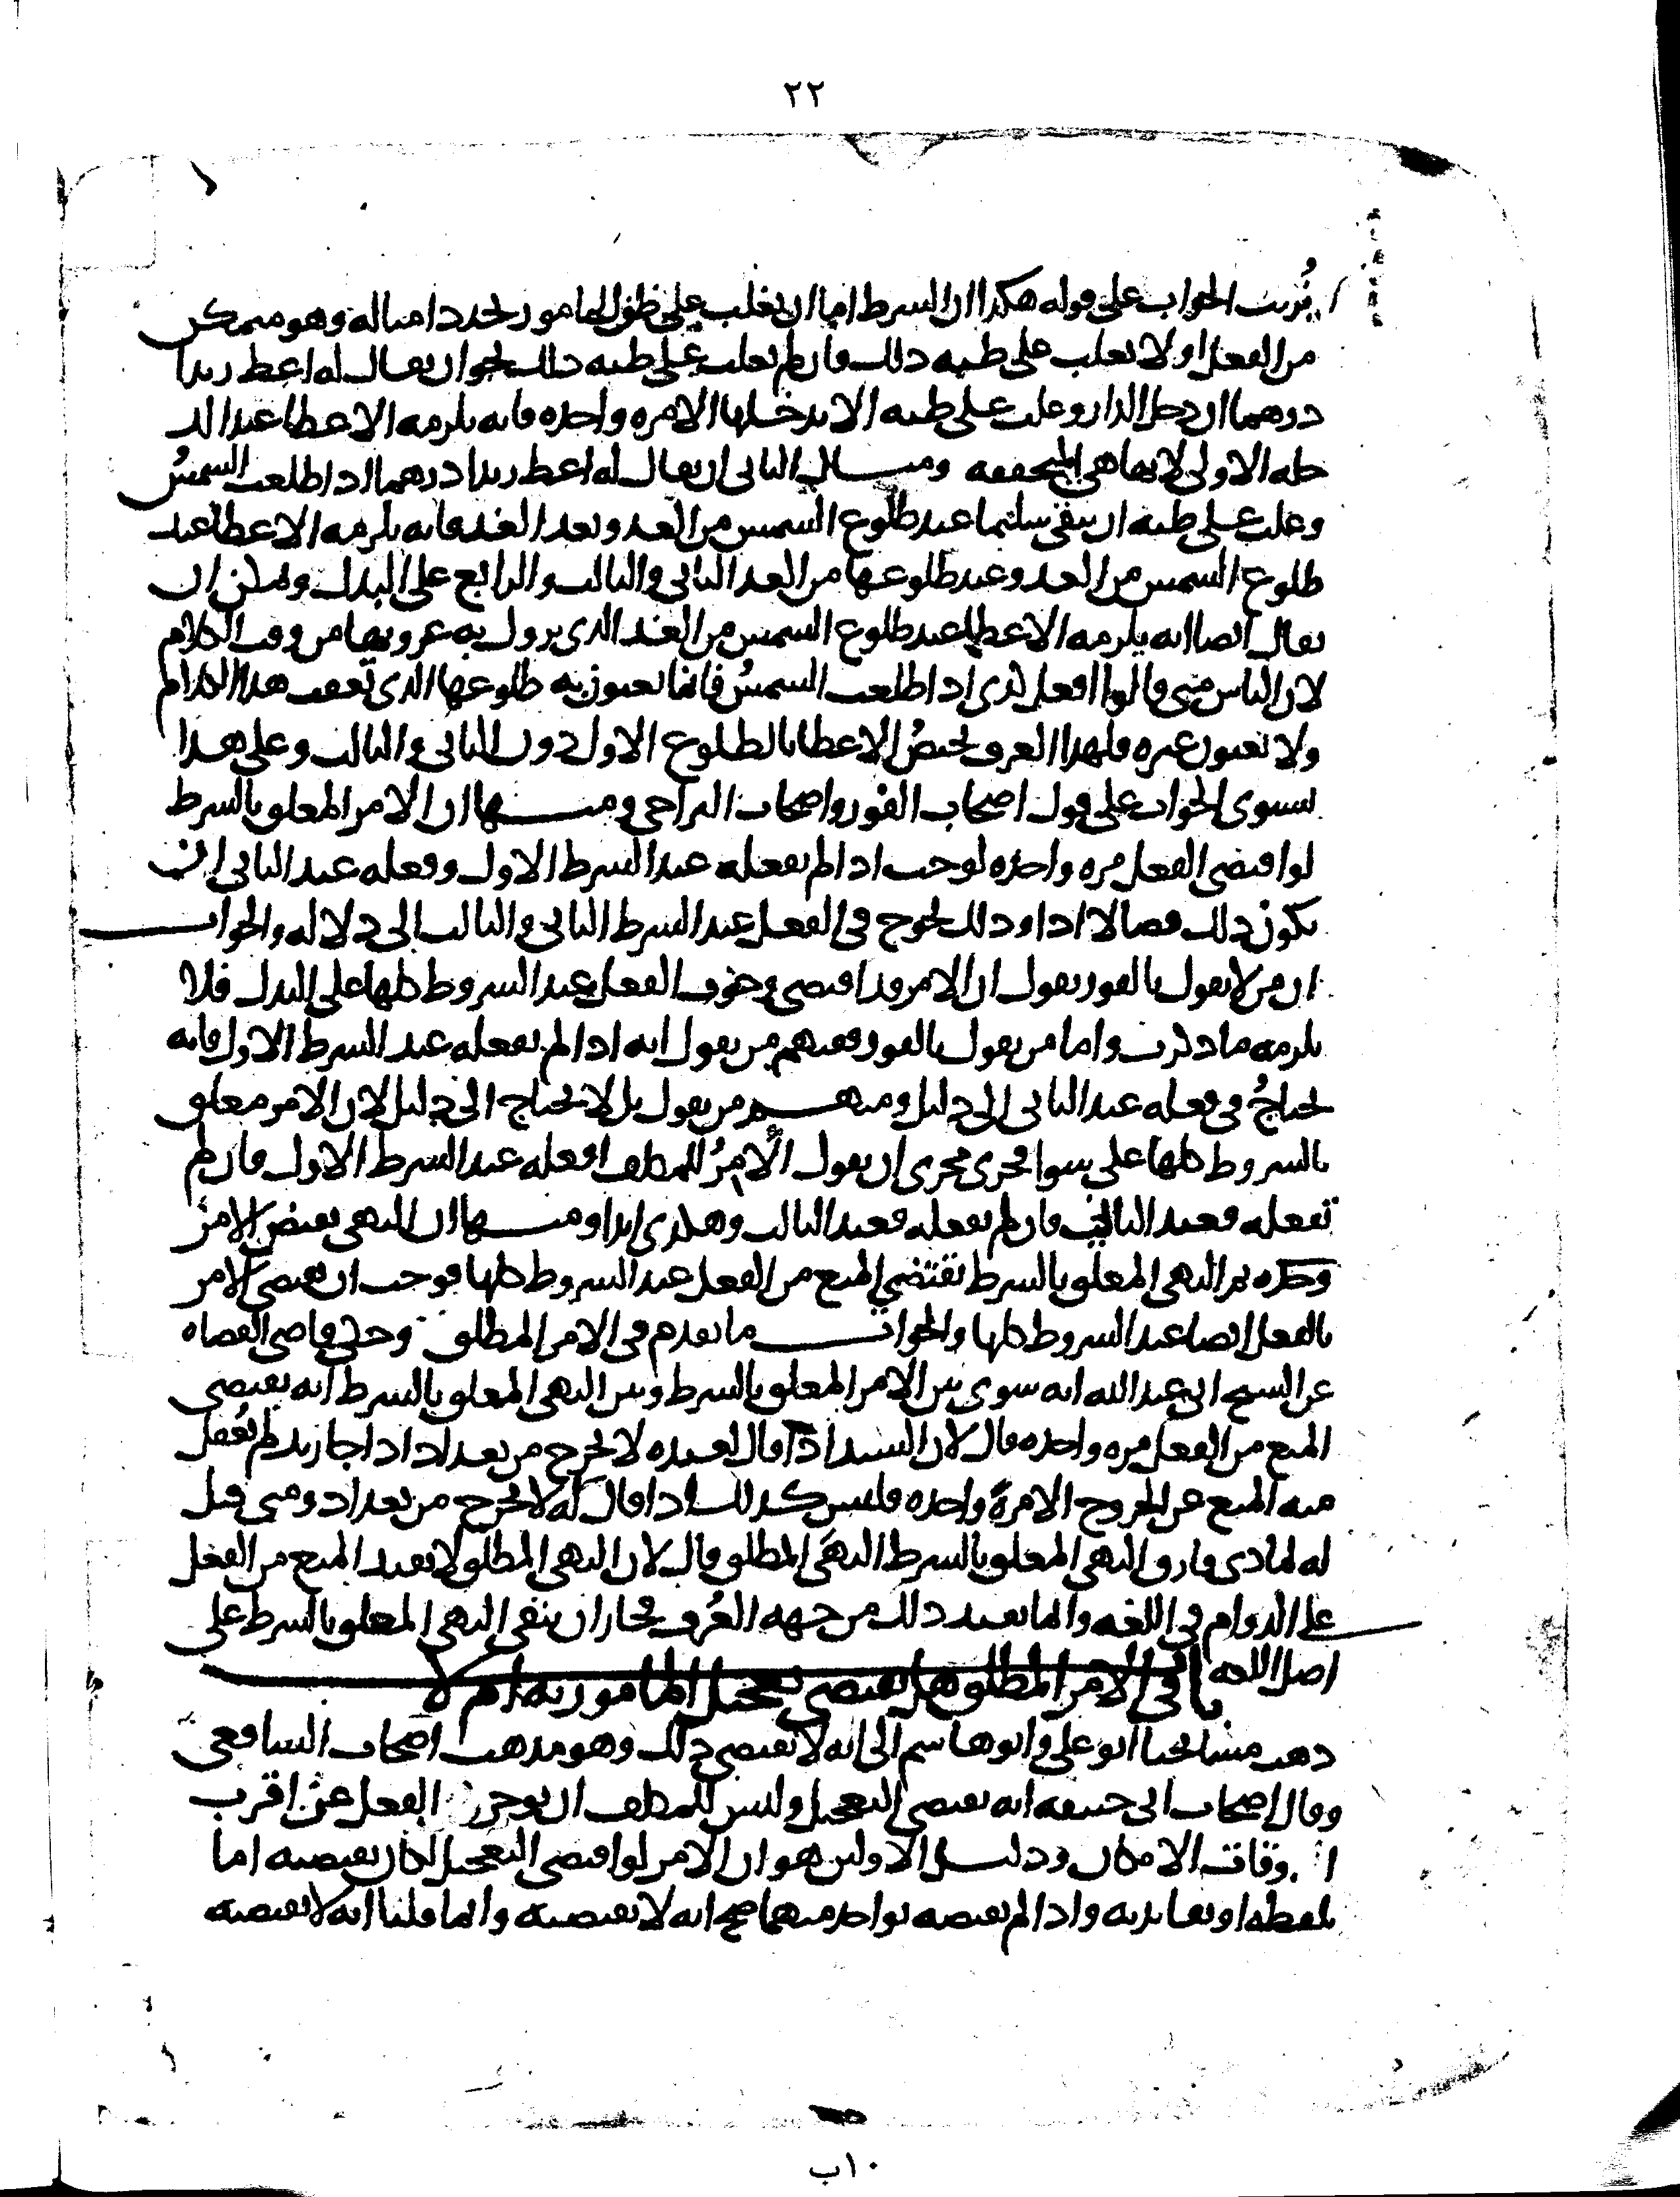 ٢٢
يُرتب الجواب على قوله هكذا ان الشرط اما ان يغلب على ظن المامور تجدد امثاله وهو متمكن
من الفعل او لا يغلب على ظنه ذلك فان لم يغلب على ظنه ذلك نحو ان يقال له اعط زيدا
درهما ان دخل الدار وغلب على ظنه الا يدخلها الا مره واحده فانه يلزمه الاعطا عند الد
خله الاولى لانها هي المتحققه ومثال الثاني ان يقال له اعط زيدا درهما اذا طلعت الشمسُ
وغلب على ظنه ان يبقى سليما عند طلوع الشمس من الغد وبعد الغد فانه يلزمه الاعطا عند
طلوع الشمس من الغد وعند طلوعها من الغد الثاني والثالث والرابع على البدل ويمكن ان
يقال ايضا انه يلزمه الاعطا عند طلوع الشمس من الغد الذي يزول به غروبها من وقت الكلام
لان الناس متى قالوا افعل كذى اذا طلعت الشمسُ فانما يعنون به طلوعها الذي تعقب هذا الكلام
ولا يعنون غيره فلهذا العرف يختصُ الاعطا بالطلوع الاول دون الثاني والثالث وعلى هذا
يستوي الجواب على قول اصحاب الفور واصحاب التراخي ومنها ان الامر المعلق بالشرط
لو اقتضى الفعل مره واحده لوجب اذا لم يفعله عند الشرط الاول وفعله عند الثاني ان
يكون ذلك قضا لا ادا وذلك يحوج في الفعل عند الشرط الثاني والثالث الى دلاله والجواب
ان من لا يقول بالفور يقول ان الامر قد اقتضى وجوب الفعل عند الشروط كلها على البدل فلا
يلزمه ما ذكرت واما من يقول بالفور فمنهم من يقول انه اذا لم يفعله عند الشرط الاول فانه
يحتاجُ في فعله عند الثاني الى دليل ومنهم من يقول بل لا يحتاج الى دليل لان الامر معلق
بالشروط كلها على سوا فجرى مجرى ان يقول الآمِرُ للمكلف افعله عند الشرط الاول فان لم
تفعله فعند الثاني فان لم تفعله فعند الثالث وهكذى ابدا ومنها ان النهي نقيض الامر
وضده ثم النهي المعلق بالشرط تقتضي المنع من الفعل عند الشروط كلها فوجب ان يقتضي الامر
بالفعل ايضا عند الشروط كلها والجواب ما تقدم في الامر المطلق وحكى قاضي القضاه
عن الشيخ ابي عبد الله انه سوى بين الامر المعلق بالشرط وبين النهي المعلق بالشرط انه يقتضي
المنع من الفعل مره واحده قال لان السيد اذا قال لعبده لا تخرج من بغداد اذا جا زيد لم يُعقل
منه المنع عن الخروج الا مرةً واحده وليس كذلك اذا قال له لا تخرج من بغداد ومتى قيل
له لماذى فارق النهي المعلق بالشرط النهي المطلق قال لان النهي المطلق لا يفيد المنع من الفعل
على الدوام في اللغه وانما يفيد ذلك من جهه العُرف فجاز ان يبقى النهي المعلق بالشرط على
اصل اللغه
باب في الامر المطلق هل يقتضي تعجيل المامور به ام لا
ذهب مشايخنا ابو علي وابو هاشم الى انه لا يقتضي ذلك وهو مذهب اصحاب الشافعي
وقال اصحاب ابي حنيفه انه يقتضي التعجيل وليس للمكلف ان يوخر الفعل عن اقرب
اوقات الامكان ودليل الاولين هو ان الامر لو اقتضى التعجيل لكان يقتضيه اما
بلفظه او بفائدته واذا لم يقتضه بواحد منهما صح انه لا يقتضيه وانما قلنا انه لا يقتضيه
١٠ب